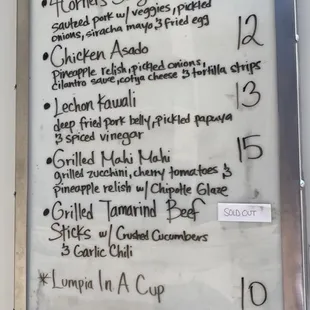 sautéed pork w/ veggies, pickled
onions, siracha mayo, & fried egg 12
• Chicken Asado
pineapple relish, pickled onions,
cilantro sauce, cotija cheese & tortilla strips 13
• Lechon Kawali
deep fried pork belly, pickled papaya
& spiced vinegar 15
• Grilled Mahi Mahi
grilled zucchini, cherry tomatoes &
pineapple relish w/ Chipotle Glaze
• Grilled Tamarind Beef SOLD OUT
Sticks w/ Crushed Cucumbers
& Garlic Chili
*Lumpia In A Cup 10